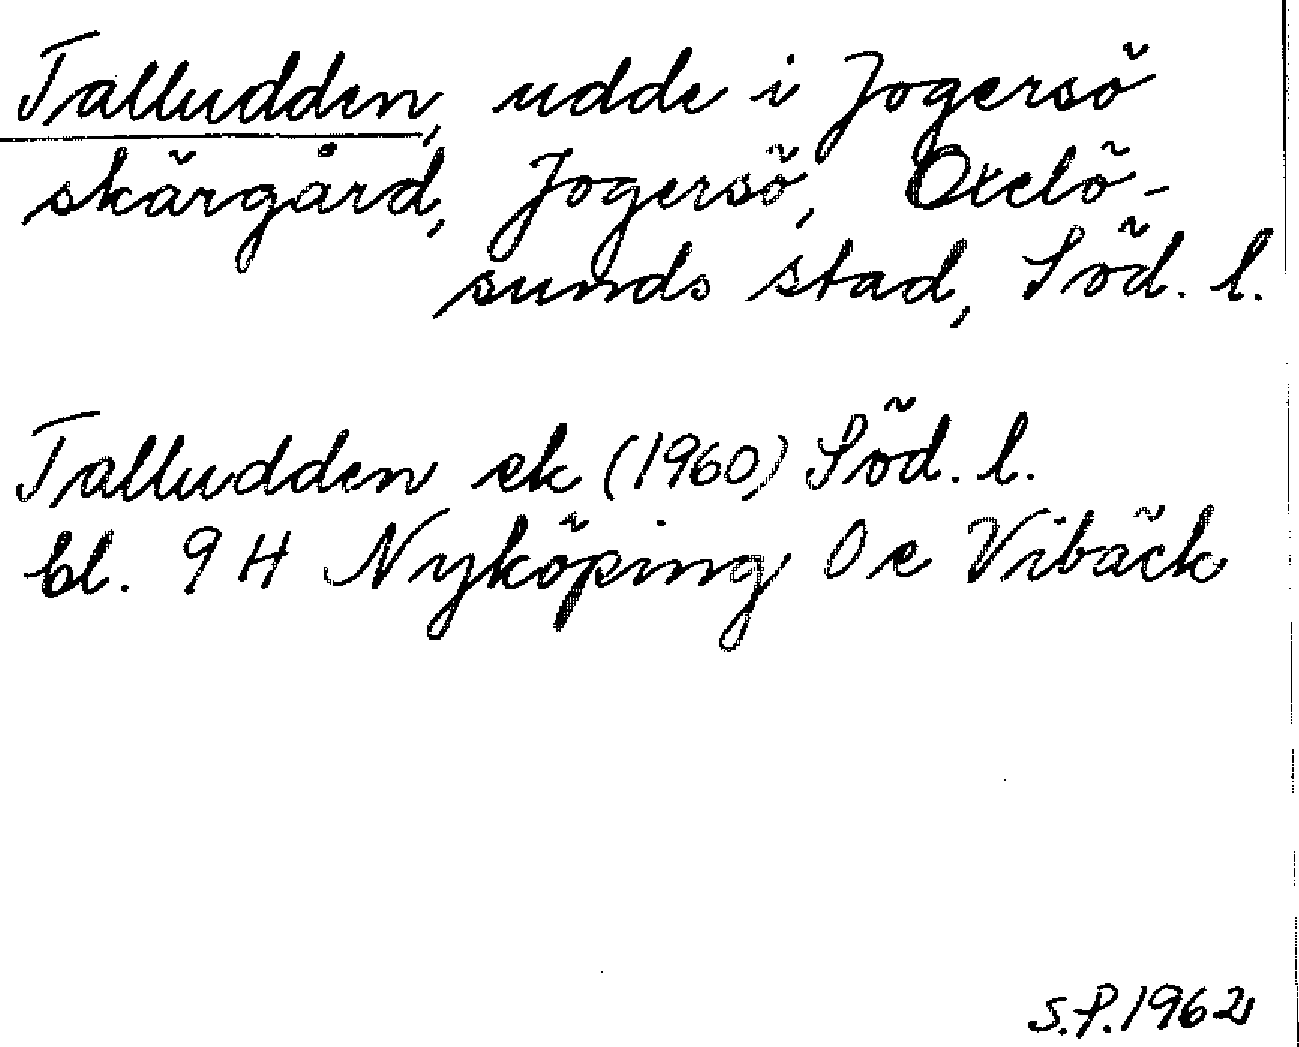 Talludden, udde i Jogersö
skärgård, Jogersö, Oxelö-
sunds stad, Söd. l.
Talludden ek (1960) Söd. l.
bl. 9 H Nyköping 0 e Vibäck
S.P. 1962